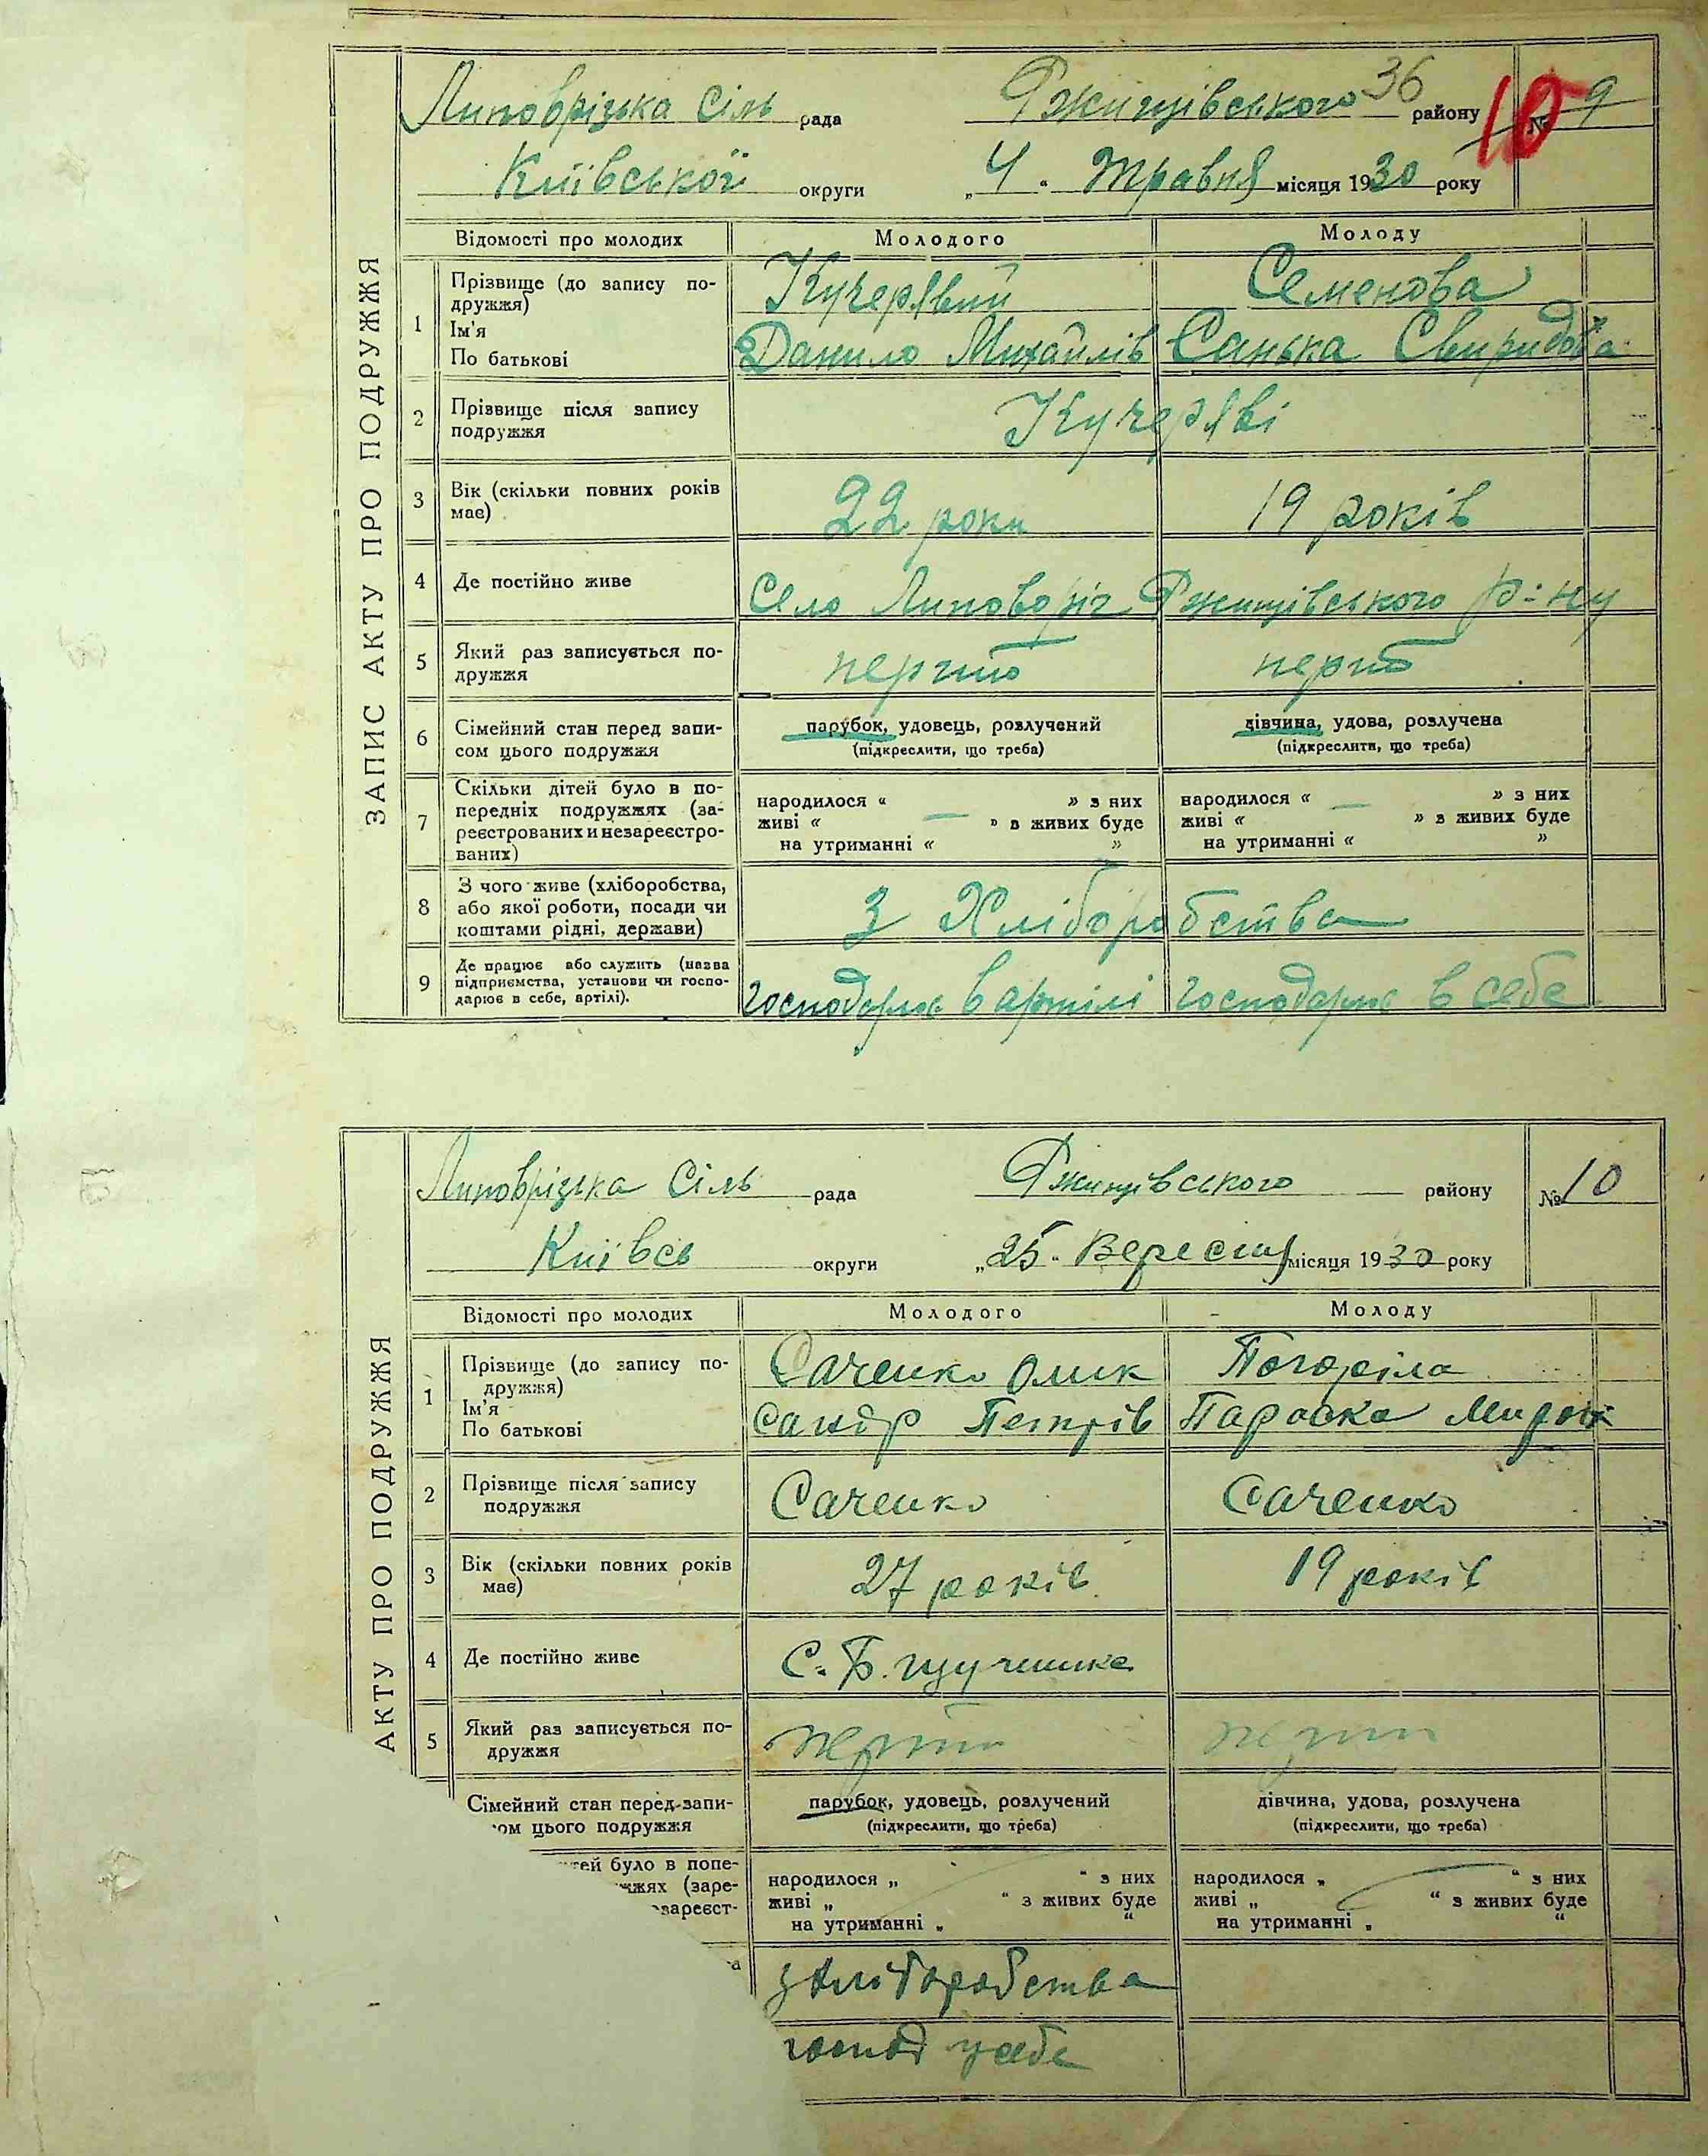 36
Липоврізька Сіль рада Ржищівського району № 9
10
Київської округи „4“ Травня місяця 1930 року
ЗАПИС АКТУ ПРО ПОДРУЖЖЯ
Відомості про молодих Молодого Молоду
1 Прізвище (до запису по-
дружжя) Кучерявий Семенова
Ім'я
По батькові Данило Михайлів Санька Свиридова
2 Прізвище після запису
подружжя Кучеряві
3 Вік (скільки повних років
має) 22 роки 19 років
4 Де постійно живе Село Липоворіг Ржищівського р-ну
5 Який раз записується по-
дружжя перший перший
6 Сімейний стан перед запи-
сом цього подружжя
парубок, удовець, розлучений дівчина, удова, розлучена
(підкреслити, що треба) (підкреслити, що треба)
7 Скільки дітей було в по-
передніх подружжях (за-
реєстрованих и незареєстро-
ваних)
народилося « » з них народилося « — » з них
живі « — » з живих буде живі « » з живих буде
на утриманні « » на утриманні « »
8 З чого живе (хліборобства,
або якої роботи, посади чи
коштами рідні, держави)
З Хліборобства
9 Де працює або служить (назва
підприємства, установи чи госпо-
дарює в себе, артілі).
господарює в артілі господарює в себе
Липоврізька Сіль рада Ржищівського району № 10
Київсь округи „25“ Вересня місяця 1930 року
АКТУ ПРО ПОДРУЖЖЯ
Відомості про молодих Молодого Молоду
1 Прізвище (до запису по-
дружжя) Саченко Олик Погоріла
Ім'я
По батькові сандр Петрів Параска Мирон
2 Прізвище після запису
подружжя Саченко Саченко
3 Вік (скільки повних років
має) 27 років 19 років
4 Де постійно живе С. Б. щучинка
5 Який раз записується по-
дружжя перший перший
Сімейний стан перед запи-
ом цього подружжя
парубок, удовець, розлучений дівчина, удова, розлучена
(підкреслити, що треба) (підкреслити, що треба)
тей було в попе-
жжях (заре-
зареєст-
народилося „ “ з них народилося „ “ з них
живі „ “ з живих буде живі „ “ з живих буде
на утриманні „ “ на утриманні „ “
а
з хліборобства
господ у себе